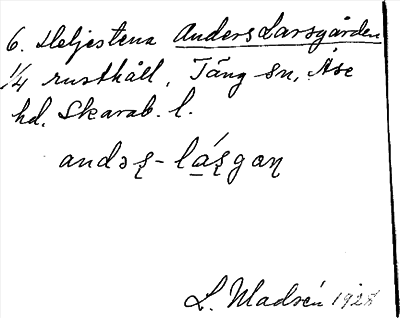 6. Heljestena Anders Larsgården
1/4 rusthåll, Täng sn, Åse
hd. Skarab. l.
andəʂ-láʂgaɳ
L. Madsén 1928